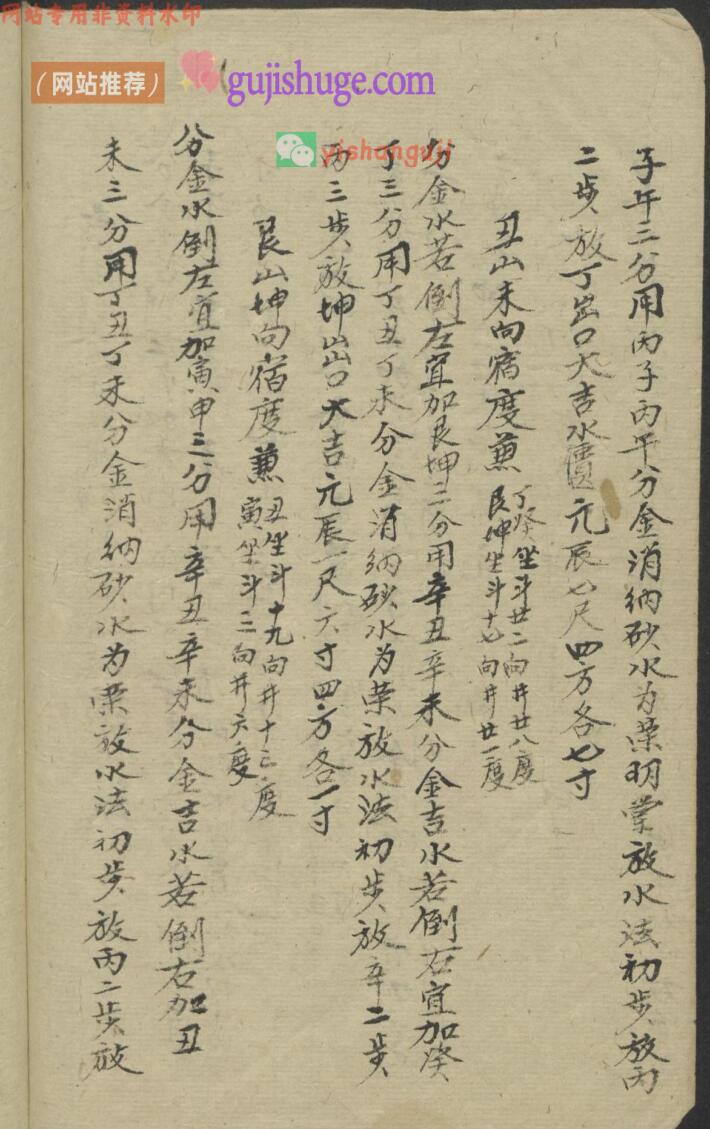 网站专用非资料水印
(网站推荐)
gujishuge.com
yishanguji
子午三分用丙子丙午分金消纳砂水为荣明堂放水法初步放丙
二步放丁出口大吉水 元辰七尺四方各七寸
丑山未向宿度兼
丁癸坐斗廿二向井廿八度
艮坤坐斗十七向井廿一度
分金水若倒左宜加艮坤二分用辛丑辛未分金吉水若倒右宜加癸
丁三分用丁丑丁未分金消纳砂水为荣放水法初步放辛二步
丙三步放坤出口大吉元辰一尺六寸四方各一寸
艮山坤向宿度兼
丑坐斗十九向井十三度
寅坐斗三向井六度
分金水倒左宜加寅申三分用辛丑辛未分金吉水若倒右加丑
未三分用丁丑丁未分金消纳砂水为荣放水法初步放丙二步放